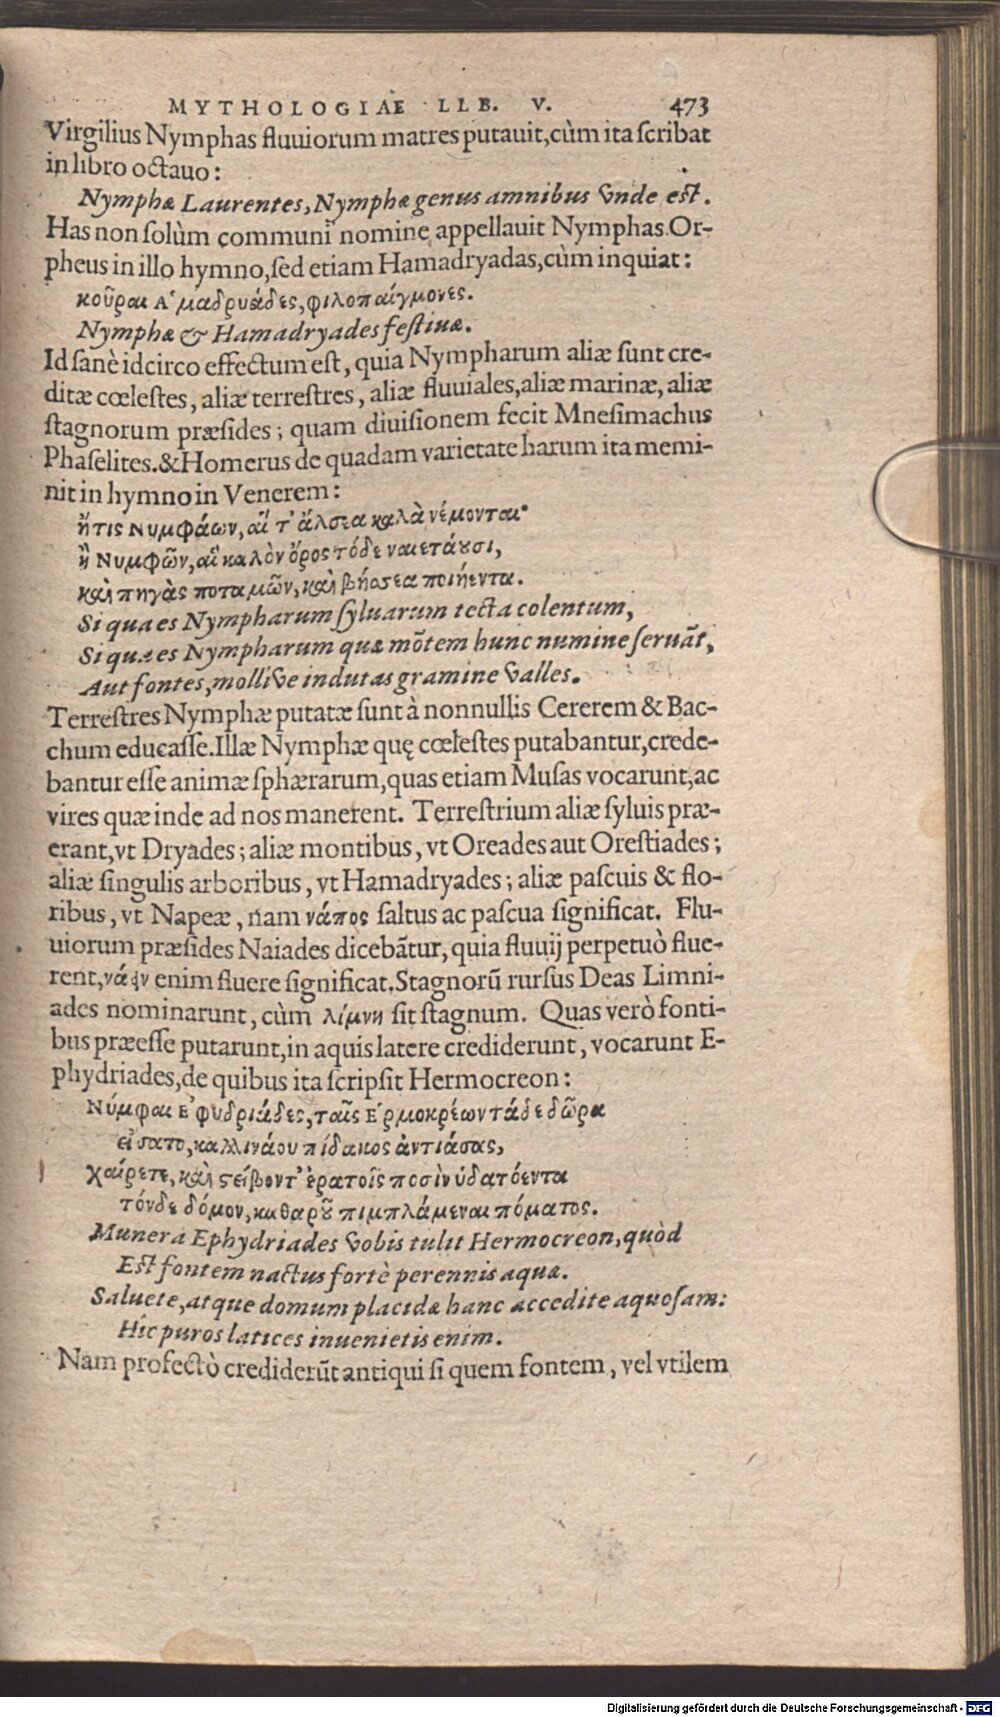 MYTHOLOGIAE LLB. V. 473
Virgilius Nymphas fluuiorum matres putauit, cùm ita ſcribat
in libro octauo:
Nymphæ Laurentes, Nymphæ genus amnibus vnde eſt.
Has non ſolùm communi nomine appellauit Nymphas Or-
pheus in illo hymno, ſed etiam Hamadryadas, cùm inquiat:
κοῦραι Ἁμαδρυάδες, φιλοπαίγμονες.
Nymphæ & Hamadryades feſtiuæ.
Id ſanè idcirco effectum eſt, quia Nympharum aliæ ſunt cre-
ditæ cœleſtes, aliæ terreſtres, aliæ fluuiales, aliæ marinæ, aliæ
ſtagnorum præſides; quam diuiſionem fecit Mneſimachus
Phaſelites. & Homerus de quadam varietate harum ita memi-
nit in hymno in Venerem:
ἤτις Νυμφάων, αἵ τ' ἄλσεα καλὰ νέμονται·
ἢ Νυμφῶν, αἳ καλὸν ὄρος τόδε ναιετάουσι,
καὶ πηγὰς ποταμῶν, καὶ βήσσεα ποιήεντα.
Si qua es Nympharum ſyluarum tecta colentum,
Si qua es Nympharum quæ mõtem hunc numine ſeruãt,
Aut fontes, molliúe indutas gramine valles.
Terreſtres Nymphæ putatæ ſunt à nonnullis Cererem & Bac-
chum educaſſe. Illæ Nymphæ quę cœleſtes putabantur, crede-
bantur eſſe animæ ſphærarum, quas etiam Muſas vocarunt, ac
vires quæ inde ad nos manerent. Terreſtrium aliæ ſyluis præ-
erant, vt Dryades; aliæ montibus, vt Oreades aut Oreſtiades;
aliæ ſingulis arboribus, vt Hamadryades; aliæ paſcuis & flo-
ribus, vt Napeæ, nam νάπος ſaltus ac paſcua ſignificat. Flu-
uiorum præſides Naiades dicebãtur, quia fluuij perpetuò flue-
rent, νάειν enim fluere ſignificat. Stagnorũ rurſus Deas Limni-
ades nominarunt, cùm λίμνη ſit ſtagnum. Quas verò fonti-
bus præeſſe putarunt, in aquis latere crediderunt, vocarunt E-
phydriades, de quibus ita ſcripſit Hermocreon:
Νύμφαι Ἐφυδριάδες, ταῖς Ἑρμοκρέων τάδε δῶρα
εἵσατο, καλλινάου πίδακος ἀντιάσας,
χαίρετε, καὶ στείβοντ' ἐρατοῖς ποσὶν ὑδατόεντα
τόνδε δόμον, καθαροῦ πιμπλάμεναι πόματος.
Munera Ephydriades vobis tulit Hermocreon, quòd
Eſt fontem nactus fortè perennis aquæ.
Saluete, atque domum placidæ hanc accedite aquoſam:
Hic puros latices inuenietis enim.
Nam profectò crediderũt antiqui ſi quem fontem, vel vtilem
Digitalisierung gefördert durch die Deutsche Forschungsgemeinschaft - DFG